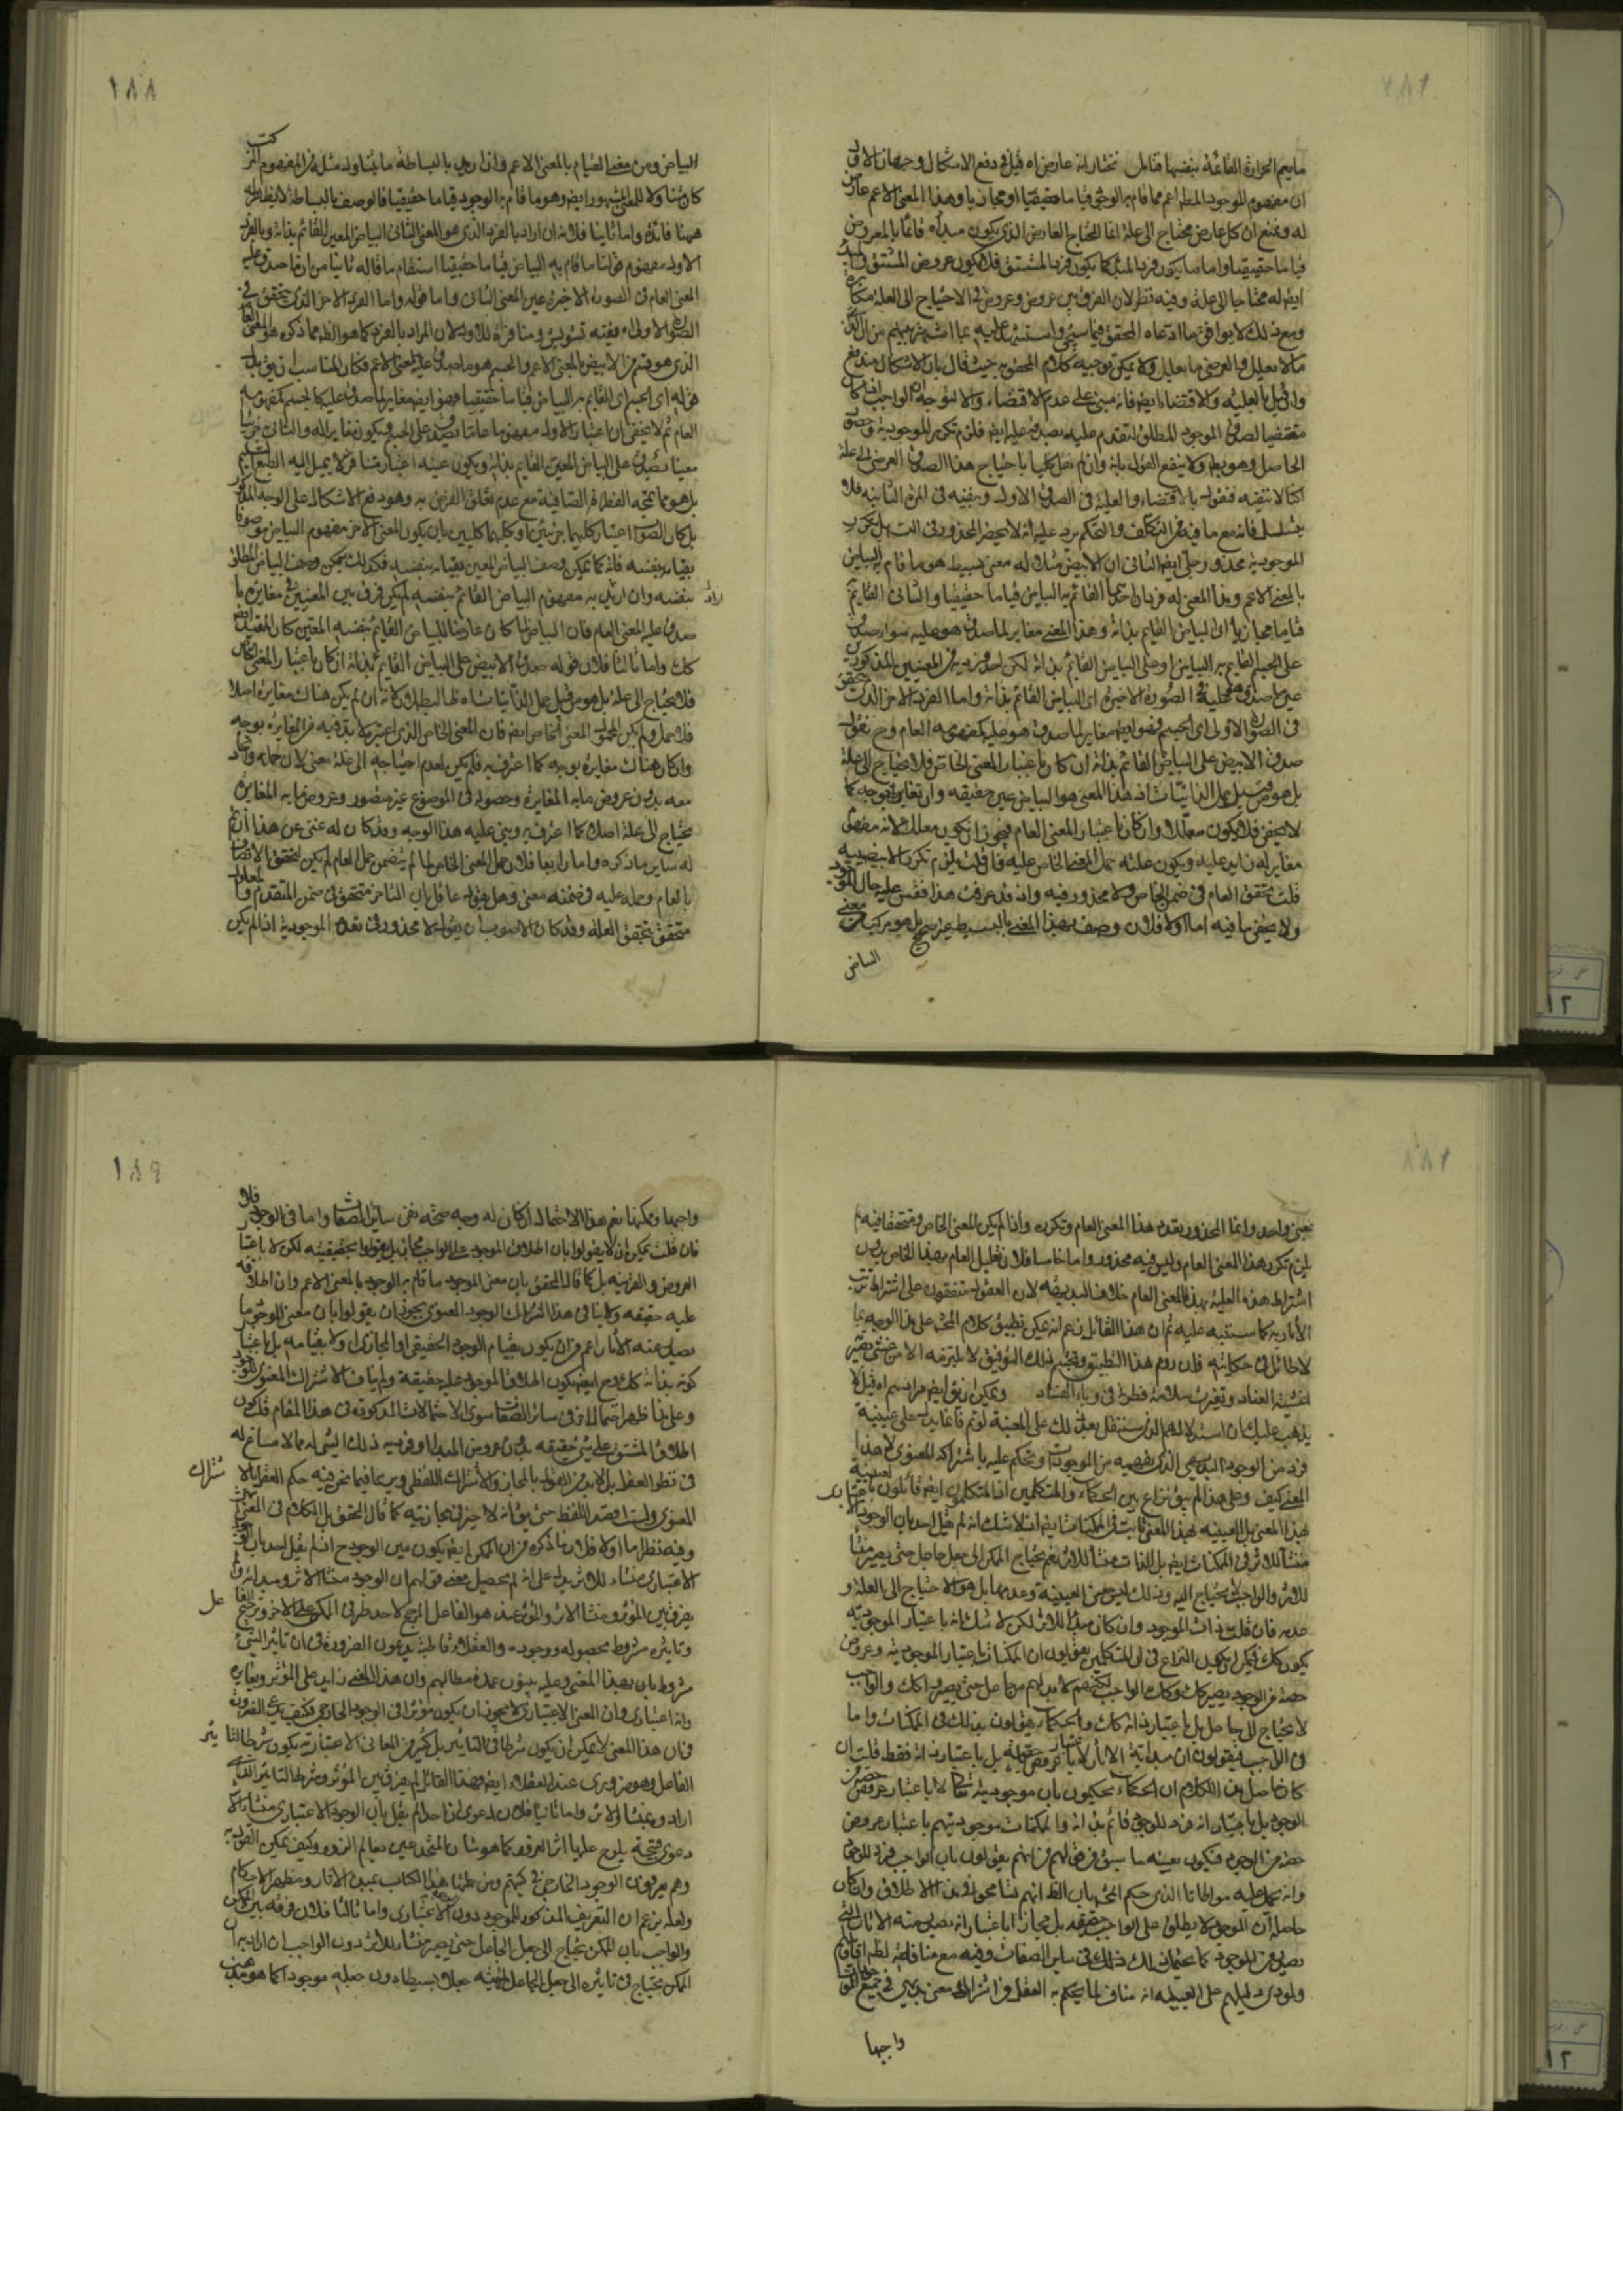 ما يعم الحرارة القائمة بنفسها فتامل نختار انه عارض اه قيل في دفع الاشكال وجهان الاول
ان مفهوم الموجود المطلق اعم مما قام به الوجود قياما حقيقيا او مجازيا وهذا المعنى الاعم عارض
له ونمنع ان كل عارض محتاج الى علة انما المحتاج العارض الذي يكون مبدأه قائما بالمعروض
قياما حقيقيا واما ما يكون فردا لمبدأ كما يكون فردا للمشتق فلا يكون عروض المشتق
ايضا له محتاجا الى علة وفيه نظر لان الفرق بين عروض وعروض في الاحتياج الى العلة مكابرة
ومع ذلك لا يوافق ما ادعاه المحقق فيما سيجئ واستشهد عليه بما اشتهر بينهم من ان الذاتي
ما لا يعلل والعرضي ما يعلل ولا يمكن توجيه كلام المحقق به حيث قال بان الاشكال مندفع
وان قيل بالعلية والاقتضاء ايضا فانه مبني على عدم الاقتضاء والا لتوجه ان الواجب اذا كان
مقتضيا لصدق الموجود المطلق لتقدم عليه بصدقه عليه ايضا فلزم تكرر الموجودية وحصول
الحاصل وهو ولا ينفع القول بانه وان لم نقل كليا باحتياج هذا الصدق العرضي الى علة
لكنا لا ننفيه فنقول بالاقتضاء والعلية في الصدق الاول وننفيه في المرة الثانية فلا
يتسلسل فانه مع ما فيه من التكلف والتحكم يرد عليه انه لا يحضر المحذور في التس بل تكرر
الموجودية محذور جلي ايضا الثاني ان الابيض مثلا له معنى بسيط هو ما قام به البياض
بالمعنى الاعم وهذا المعنى له فردان احدهما القائم به البياض قياما حقيقيا والثاني القائم
قياما مجازيا اى البياض القايم بذاته وهذا المعنى مغاير لما صدق هو عليه سواء صدق
على الجسم القايم به البياض او على البياض القائم بذاته لكن احد فرديه من المعنيين المذكورين
عين ما صدق هو عليه في الصورة الاخيرة اى البياض القائم بذاته واما الفرد الاخر الذي يتحقق
في الصورة الاولى اى الجسم فهو ايضا مغاير لما صدق هو عليه كمفهومه العام وح نقول
صدق الابيض على البياض القائم بذاته ان كان باعتبار المعنى الخاص فلا يحتاج الى علة
بل هو من قبيل حمل الذاتيات اذ هذا المعنى هو البياض عين حقيقته وان تغاير بوجه كما
لا يخفى فلا يكون معللا وان كان باعتبار المعنى العام فيجوز ان يكون معللا لانه مفهوم
مغاير له زايد عليه ويكون علته حمل المعنى الخاص عليه فان قلت يلزم تكرر الابيضية
قلت تحقق العام في ضمن الخاص ولا محذور فيه واذ قد عرفت هذا فقس عليه حال الموجود
ولا يخفى ما فيه اما اولا فلان وصف هذا المعنى بالبسيط غير صحيح بل هو مركب من معنى
البياض
١٨٨
البياض ومن معنى القيام بالمعنى الاعم وان اريد بالبساطة ما يتناول مثله من المفهوم المركب
كان منافيا للمعنى المشهور ايضا وهو ما قام به الوجود قياما حقيقيا فالوصف بالبساطة لا يظهر له
ههنا فائدة واما ثانيا فلانه ان اراد بالفرد الذي هو المعنى الثاني البياض المعين القائم بذاته وبالفرد
الاول مفهوم قولنا ما قام به البياض قياما حقيقيا استقام ما قاله ثانيا من ان ما صدق عليه
المعنى العام في الصورة الاخيرة عين المعنى الثاني واما قوله واما الفرد الاخر الذي يتحقق في
الصورة الاولى اه ففيه تشويش ومنافرة للاول لان المراد بالفرد كما هو الظ مما ذكره هو المعنى العام
الذي هو قسم من الابيض بالمعنى الاعم والجسم هو ما صدق عليه المعنى الاعم فكان المناسب ان يق بدل
قوله اى الجسم اى القايم به البياض قياما حقيقيا فهو ايضا مغاير لما صدق عليه كالجسم كمفهومه
العام ثم لا يخفى ان اعتبار الاول مفهوما عاما يصدق على الجسم فيكون مغايرا له والثاني جزئيا
معينا يصدق على البياض المعين القايم بذاته ويكون عينه اعتبار متنافر لا يميل اليه الطبع السليم
بل هو مما يمجه الفطرة الصافية مع عدم تعلق الغرض به وهو دفع الاشكال على الوجه المذكور
بل كان الصواب اعتبار كليهما جزئيين او كليهما كليين بان يكون المعنى الاخر مفهوم البياض موصوفا
بقيامه بنفسه فانه كما يمكن وصف البياض المعين بقيامه بنفسه فكذلك يمكن وصف البياض المطلق
بنفسه وان اريد به مفهوم البياض القائم بنفسه لم يكن فرق بين المعنيين في مغايرة ما
صدق عليه المعنى العام فان البياض لما كان عارضا للبياض القائم بنفسه المعين كان المقيد ايضا
كك واما ثالثا فلان قوله صدق الابيض على البياض القائم بذاته ان كان باعتبار المعنى الخاص
فلا يحتاج الى علة بل هو من قبيل حمل الذاتيات اه ظاهر البطلان لانه ان لم يكن هناك مغايرة اصلا
فلا حمل ولم يكن المحمول المعنى الخاص ايضا فان المعنى الخاص الذي اعتبره لا بد فيه من المغايرة بوجه
وان كان هناك مغايرة بوجه كما اعترف به فلم يكن لعدم احتياجه الى علة معنى لان حمله واتحاده
معه بدون عروض ما به المغايرة وحصوله في الموضوع غير متصور وعروض ما به المغايرة
يحتاج الى علة اصلا كما اعترف به وبنى عليه هذا الوجه وقد كان له غنى عن هذا اذ تم
له ساير ما ذكره واما رابعا فلان حمل المعنى الخاص لما لم يتضمن حمل العام لم يكن لتحقق الاتصاف
بالعام وحمله عليه في ضمنه معنى وهل يقول عاقل بان المتاخر متحقق في ضمن المتقدم والمعلول
متحقق بتحقق العلة وقد كان الاصوب ان يقول لا محذور في تعدد الموجودية اذا لم يكن
معنى واحد وانما المحذور بعدد هذا المعنى العام وتكرره واذا لم يكن المعنى الخاص متحققا فيه لم
يلزم تكرر هذا المعنى العام وليس فيه محذور واما خامسا فلان تعليل العام بهذا الخاص بدون
اشتراط هذه العلية بهذا المعنى العام خلاف البديهة لان العقول متفقون على اشتراط ترتب
الآثار به كما سننبه عليه ثم ان هذا القائل زعم انه يمكن تطبيق كلام المحشي على هذا الوجه بما
لا طائل في حكايته فان روم هذا التطبيق وتجشم ذلك التوفيق لا يلتزمه الا من غشي بصيرته
اغشية العناد وتغيرت سلامة فطرته في وباء الفساد ويمكن ان يق ايضا مرادهم اه قيل لا
يذهب عليك ان استدلالهم الذي سننقل بعد ذلك على العينية لو تم فانما يدل على عينية
فرد من الوجود البديهي الذي نفهمه من الموجودات ونحكم عليه باشتراكه المعنوي لا هذا
المعنى كيف وعلى هذا لم يبق نزاع بين الحكماء والمتكلمين اذ المتكلمون ايضا قائلون بالعينية
بهذا المعنى بل العينية بهذا المعنى ثابت في الممكنات ايضا اذ لا شك انه لم يقل احد بان الوجود
منشأ للاثر في الممكنات ايضا بل الذات منشأ للاثر نعم يحتاج الممكن الى جعل جاعل حتى يصير منشأ
للاثر والواجب لا يحتاج اليه وذلك ليس من العينية وعدمها بل هو الاحتياج الى العلة و
عدمه فان قلت ذات الموجود وان كان مبدأ للاثر لكن لا شك انه باعتبار الموجودية
يكون كك فيمكن ان يكون النزاع في ان المتكلمين يقولون ان الممكنات باعتبار الموجودية وعروض
حصة من الوجود يصير كك وكذا الواجب لكنهم لا بد لهم من جاعل حتى يصيروا كك والواجب
لا يحتاج الى جاعل بل باعتبار ذاته كك والحكماء يقولون بذلك في الممكنات واما
في الواجب فيقولون ان مبدأية الاثار لا باعتبار عروض حصة بل باعتبار ذاته فقط قلت ان
كان حاصل هذا الكلام ان الحكماء يحكمون بان موجوديته تعالى لا باعتبار عروض حصة من
الوجود بل باعتبار انه فرد للوجود قائم بذاته والممكنات موجوديتهم باعتبار عروض
حصة من الوجود فيكون بعينه ما سبق من قولهم من انهم يقولون بان الواجب فرد للوجود
وانه يحمل عليه مواطاة الذي حكم المحشي بان الظ انهم تسامحوا في هذا الاطلاق وان كان
حاصله ان الموجود لا يطلق على الواجب حقيقة بل مجازا باعتبار انه يصدر منه الاثار التي
يصدر من الموجود كما يحتمل ذلك في ساير الصفات وفيه مع منافاته لظ اقوالهم
ولمودى دليلهم على العينية انه مناف لما يحكم به العقل من اشتراك معنى بديهي في جميع الموجودات
واجبها
١٨٩
واجبها وممكنها نعم هذا الاحتمال ان كان له وجه صحة ففي سائر الصفات واما في الوجود فلا
فان قلت يمكن ان لا يقولوا بان اطلاق الموجود على الواجب مجاز بل يقولوا بحقيقيته لكن لا باعتبار
العروض والفردية بل كما قال المحقق بان معنى الموجود ما قام به الوجود بالمعنى الاعم وان اطلاقه
عليه حقيقة ولا ينافي هذا اشتراك الوجود المعنوي يجوز ان يقولوا بان معنى الوجود ما
يصدر عنه الاثار اعم من ان يكون بقيام الوجود الحقيقي او المجازي او لا بقيامه بل باعتبار
كونه بذاته كك وح ايضا يكون اطلاق الموجود عليه حقيقة ولم يناف الاشتراك المعنوي للوجود
وعلى هذا ظهر احتمال اخر في سائر الصفات سوى الاحتمالات المذكورة في هذا المقام فلا يكون
اطلاق المشتق على شئ حقيقة بدون عروض المبدأ او فرديه ذلك الشئ له مما لا مساغ له
في نظر العقل بل لا بد من القول بالمجاز والاشتراك اللفظي وربما فيما نحن فيه حكم العقل بالاشتراك
المعنوي ولسنا بصدد اللفظ حتى يق انه لا حجر في مجازيته كما قال المحقق بل الكلام في المعنى
وفيه نظر اما اولا فلان ما ذكره من ان الممكن ايضا يكون عين الوجود ح اذ لم يقل احد بان الوجود
الاعتباري منشاء للاثر يدل على انه لم يحصل معنى قولهم ان الوجود منشأ الاثر ومبدئه ولم
يفرق بين المؤثر ومنشأ الاثر والمؤثر عنده هو الفاعل المرجح لاحد طرفي الممكن على الاخر وترجيح
وتاثيره مشروط بحصوله ووجوده والعقلاء قاطبة يدعون الضرورة في ان تاثير الشئ
مشروط بان بهذا المعنى وعليه يبنون عمدة مطالبهم وان هذا المعنى زايد على المؤثر ويغايره
وانه اعتباري وان المعنى الاعتباري لا يجوز ان يكون مؤثرا في الوجود الخارجي فكيف يدعي الضرورة
في ان هذا المعنى لا يمكن ان يكون شرطا في التاثير بل كثير من المعاني الاعتبارية يكون شرطا لتاثير
الفاعل وهو ضروري عند العقلاء ايضا وهذا القائل لم يفرق بين المؤثر وشرط التاثير الذي
ارادوه بمنشأ الاثر واما ثانيا فلان دعوى ان احدا لم يقل بان الوجود الاعتباري منشاء للاثار
دعوى قبيحة يلوح عليها اثر العرق كما هو شان المتحدسين بعالم الزور وكيف يمكن القول به
وهم يعرفون الوجود الخارجي في كتبهم ومن جملتها هذا الكتاب بمبدأ الاثار ومظهر الاحكام
ولعله يزعم ان التعريف المذكور للموجود دون الاعتباري واما ثالثا فلان فرقه بين الممكن
والواجب بان الممكن يحتاج الى جعل الجاعل حتى يصير منشأ للاثر دون الواجب ان اراد به ان
الممكن يحتاج في تاثيره الى جعل الجاعل المهية جعلا بسيطا دون جعله موجودا كما هو مذهب